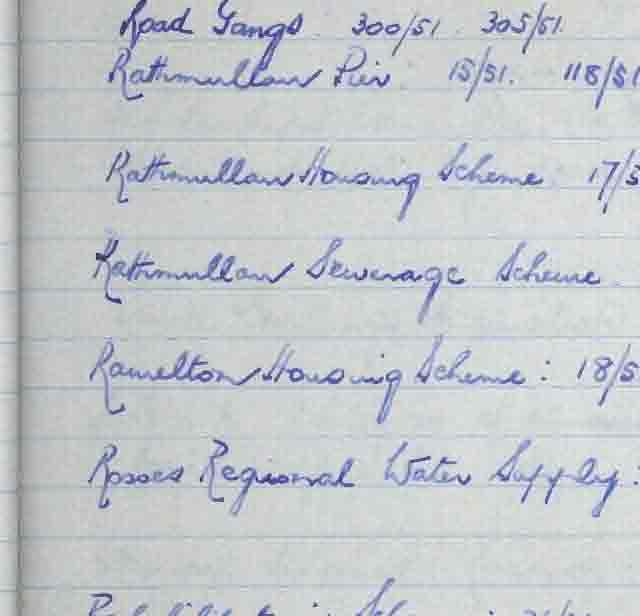 Road Gangs 300/51 305/51.
Rathmullan Pier 15/51. 118/51
Rathmullan Housing Scheme 17/5
Rathmullan Sewerage Scheme
Ramelton Housing Scheme : 18/5
Rosses Regional Water Supply.